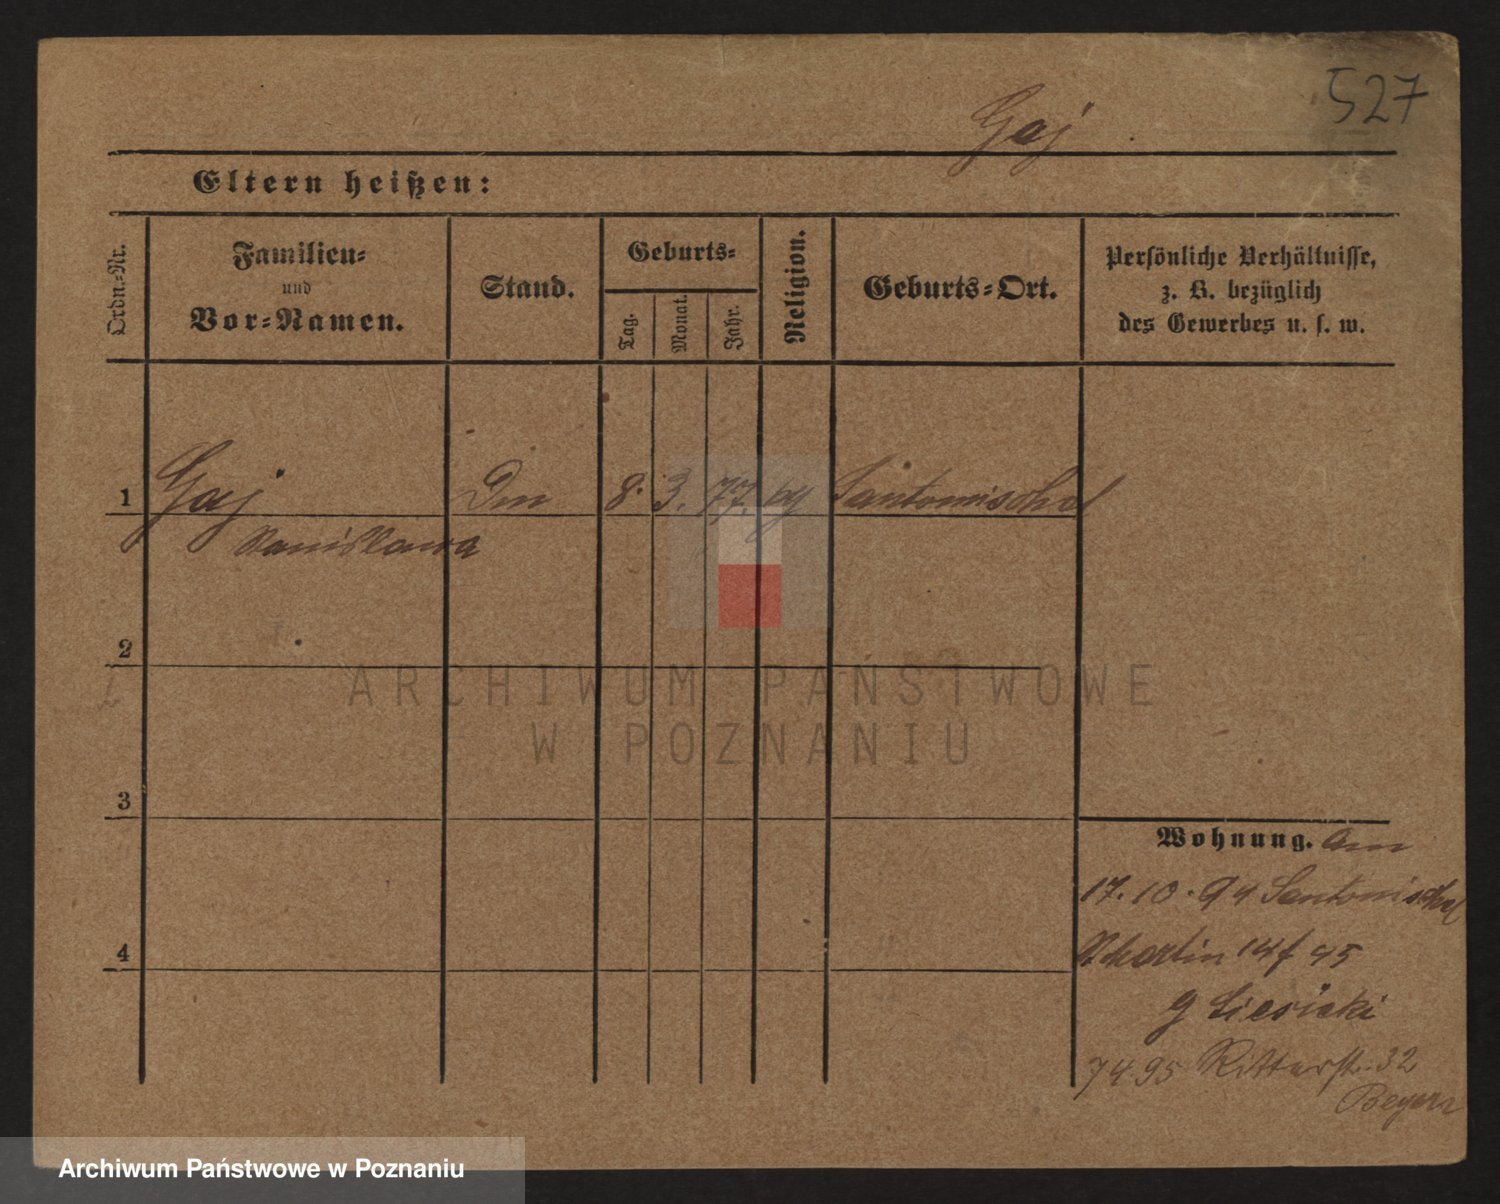 527
Gaj
Eltern heißen:
Ordn.-Nr.
Familien-
und
Vor-Namen.
Stand.
Geburts-
Tag.
Monat.
Jahr.
Religion.
Geburts-Ort.
Persönliche Verhältnisse,
z. B. bezüglich
des Gewerbes u. s. w.
1 Gaj Dm 8. 3. 77. kg Santomischel
Stanislawa
2
ARCHIWUM PAŃSTWOWE
W POZNANIU
3
Wohnung. am
17.10.94 Santomischel
4
Martin 14
74.95 Ritterstr. 32
Beyer
Archiwum Państwowe w Poznaniu